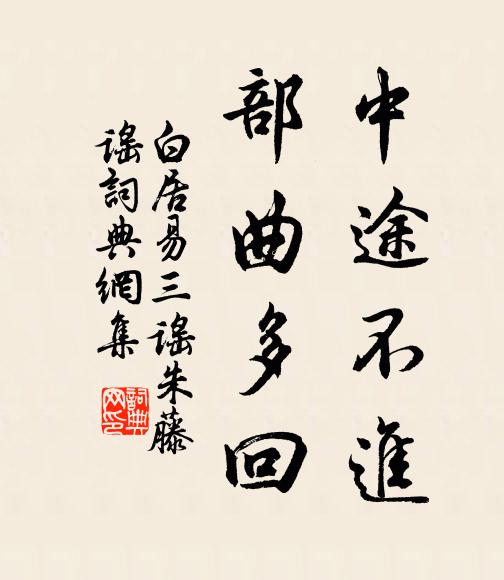 中途不進
部曲多回
白居易三謠朱藤
謠詞典網集
詞典网印